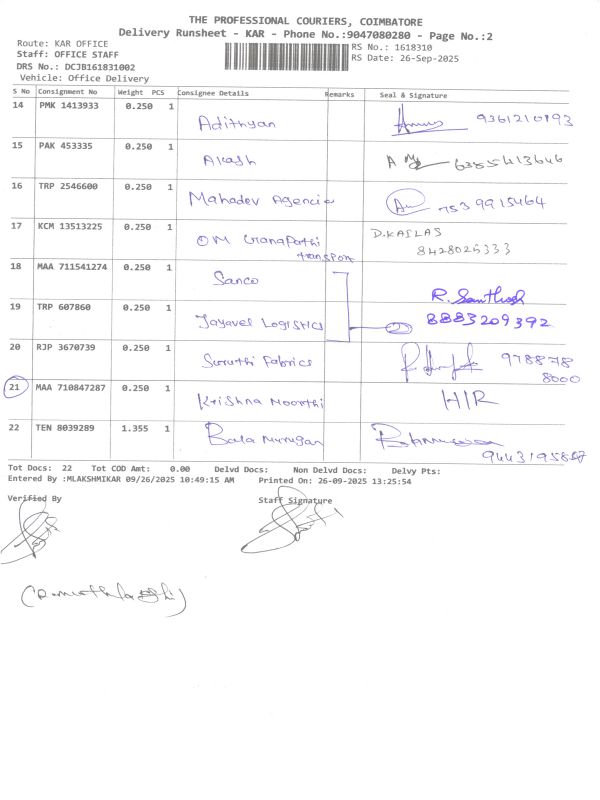 THE PROFESSIONAL COURIERS, COIMBATORE
Delivery Runsheet - KAR - Phone No.:9047080280 - Page No.:2
Route: KAR OFFICE
RS No.: 1618310
Staff: OFFICE STAFF
RS Date: 26-Sep-2025
DRS No.: DCJB161831002
Vehicle: Office Delivery
S No Consignment No Weight PCS Consignee Details Remarks Seal & Signature
14 PMK 1413933 0.250 1 Adithyan 9361210193
15 PAK 453335 0.250 1 Akash 6385413646
16 TRP 2546600 0.250 1 Mahadev Agencie 7539915464
17 KCM 13513225 0.250 1 OM Ganapathi transport D.KAILAS 8428025333
18 MAA 711541274 0.250 1 Sanco R. Santhosh
19 TRP 607860 0.250 1 Jayavel Logistics 8883209392
20 RJP 3670739 0.250 1 Suruthi Fabrics 978878 8000
21 MAA 710847287 0.250 1 Krishna Moorthi H/R
22 TEN 8039289 1.355 1 Bala Murugan
Tot Docs: 22 Tot COD Amt: 0.00 Delvd Docs: Non Delvd Docs: Delvy Pts:
Entered By :MLAKSHMIKAR 09/26/2025 10:49:15 AM Printed On: 26-09-2025 13:25:54
Verified By
Staff Signature